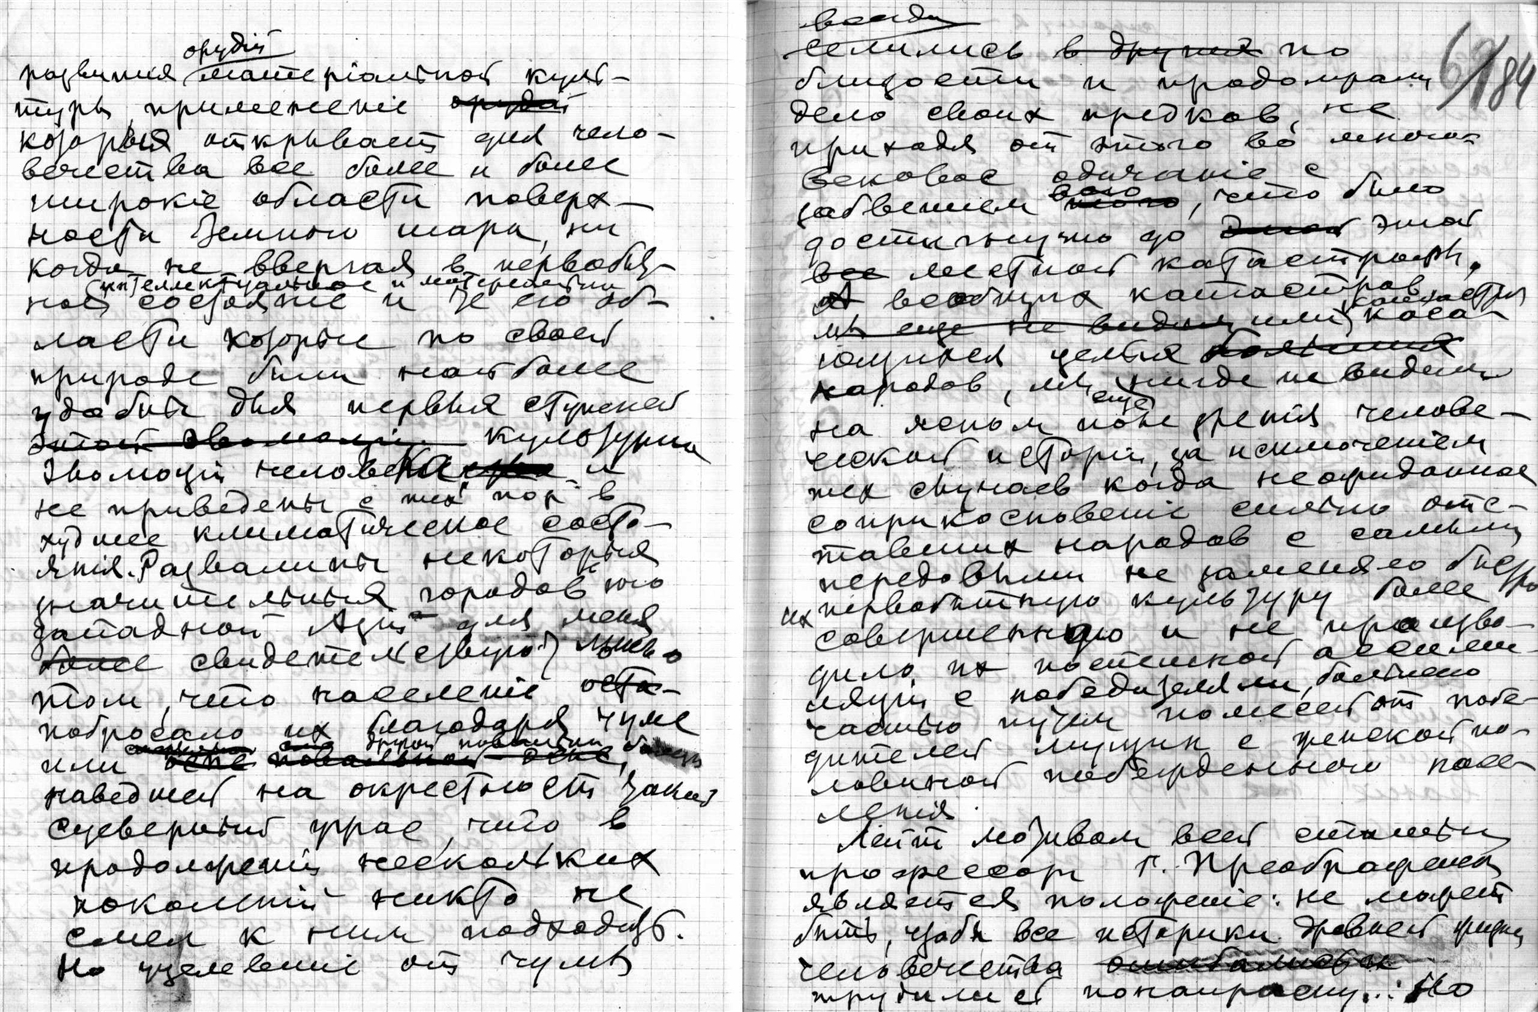 орудій
развития матеріальной куль-
туры, примененіе орудий
которыя открывает для чело-
вечества все более и более
широкіе области поверх-
ности Земного шара, ни
когда не ввергая в первобыт-
интеллектуальное и матеріальн
ное состояніе и те его об-
ласти которые по своей
природе были наиболее
удобны для первых ступеней
этой эволюціи культурна
Эволюціи человека и
не приведены с тех пор в
худшее климатическое состо-
янія. Развалины некоторых
значительных городов юго
западной Азіи для меня
более свидетельствуют лишь о
том, что населеніе оста-
побросало их благодаря чуме
другой повальн
или повальной,
наведшей на окрестности такой
суеверный ужас, что в
продолженіи нескольких
поколеній никто не
смел к ним подходить.
Но уцелевшіе от чумы
всегда
селились в других по
близости и продолжали
дело своих предков, не
приходя от этого во много-
вековое одичаніе с
забвеніем всего того, что было
достигнуто до этой этой
все местной катастрофы.
А всеобщих катастроф,
мы еще не видим или каса-
ющихся целых больших
народов, мы нигде не видим
еще
на ясном поле зренія челове-
ческой исторіи, за исключеніем
тех случаев когда неожиданное
соприкосновеніе сильно отс-
тавших народов с самыми
передовыми не заменяло быстро
их первобытную культуру более
совершенную и не произво-
дило их постепенной ассими-
ляціи с победителями, большею
частью путем помесей от побе-
дителей мущин с женской по-
ловиной побежденного насе-
ленія.
Лейт мотивом всей статьи
профессора г. Преображен
является положеніе: не может
быть, чтобы все историки древней жизни
человечества ошибались и
трудились понапрасну...: Но
184